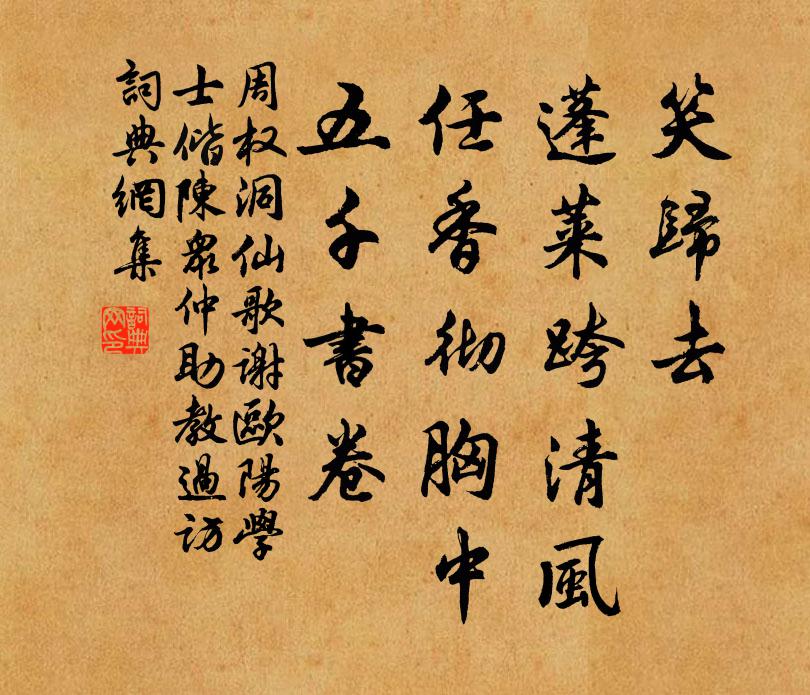 笑歸去
蓬萊跨清風
任香彻胸中
五千書卷
周权洞仙歌謝歐陽學
士偕陳衆仲助教過訪
詞典網集
詞典網印